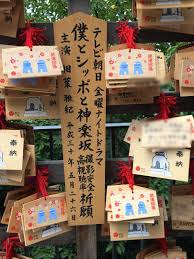 テレビ朝日 金曜ナイトドラマ
僕とシッポと神楽坂 撮影安全 高視聴率 祈願
主演 相葉 雅紀 平成三十年五月二十六日
奉納
奉納